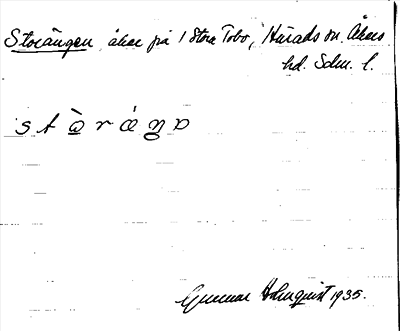 Storängen åker på 1 Stora Tobo, Härads sn. Åkers
hd. Sdm. l.
Gunnar Holmquist 1935.